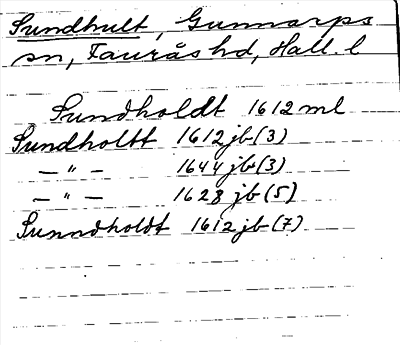 Sundhult, Gunnarps
sn, Faurås hd, Hall. l
Sundholdt 1612 ml
Sundholtt 1612 jb (3)
— " — 1644 jb (3)
— " — 1628 jb (5)
Sunndholdt 1612 jb (7)